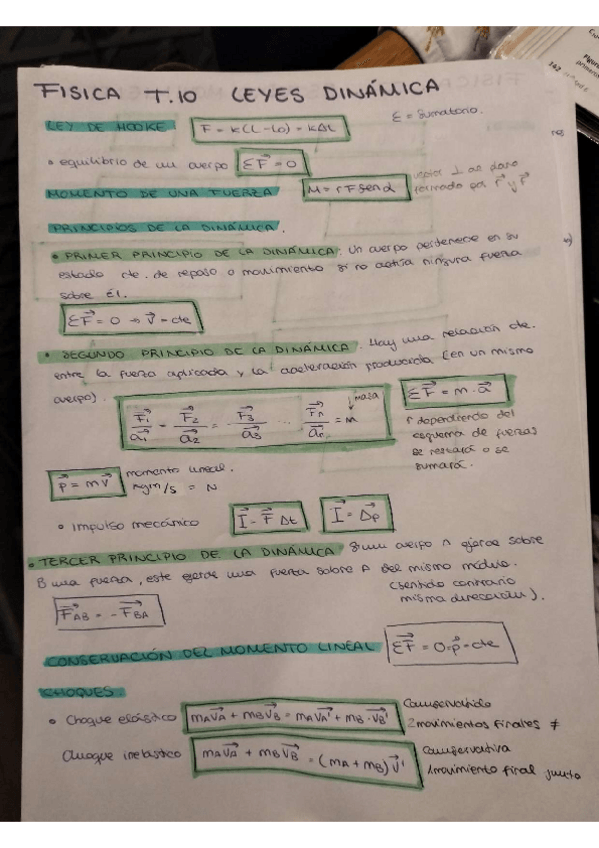 FISICA T.10 LEYES DINÁMICA
LEY DE HOOKE F = k(L-L0) = kΔL Σ = Sumatorio.
• equilibrio de un cuerpo ΣF⃗ = 0
MOMENTO DE UNA FUERZA M = r F sen α vector ⊥ al plano
formado por r⃗ y F⃗
PRINCIPIOS DE LA DINÁMICA.
• PRIMER PRINCIPIO DE LA DINÁMICA. Un cuerpo permanece en su
estado cte. de reposo o movimiento si no actúa ninguna fuerza
sobre Él.
ΣF⃗ = 0 → v⃗ = cte
• SEGUNDO PRINCIPIO DE LA DINÁMICA. Hay una relación cte.
entre la fuerza aplicada y la aceleración producida (en un mismo
cuerpo).
F⃗1/a⃗1 = F⃗2/a⃗2 = F⃗3/a⃗3 ... F⃗n/a⃗n = m masa
ΣF⃗ = m · a⃗
dependiendo del
esquema de fuerzas
se restará o se
sumará.
p⃗ = mv⃗ momento lineal.
kgm/s = N
• Impulso mecánico I⃗ = F⃗ Δt I⃗ = Δp⃗
• TERCER PRINCIPIO DE LA DINÁMICA Si un cuerpo A ejerce sobre
B una fuerza, este ejerce una fuerza sobre A del mismo módulo.
(sentido contrario
misma dirección).
F⃗AB = -F⃗BA
CONSERVACIÓN DEL MOMENTO LINEAL ΣF⃗ = 0 · p⃗ = cte
CHOQUES.
• Choque elástico mAv⃗A + mBv⃗B = mAv⃗A' + mB · v⃗B'
2 movimientos finales ≠
Choque inelástico mAv⃗A + mBv⃗B = (mA + mB) v⃗'
1 movimiento final junto
142